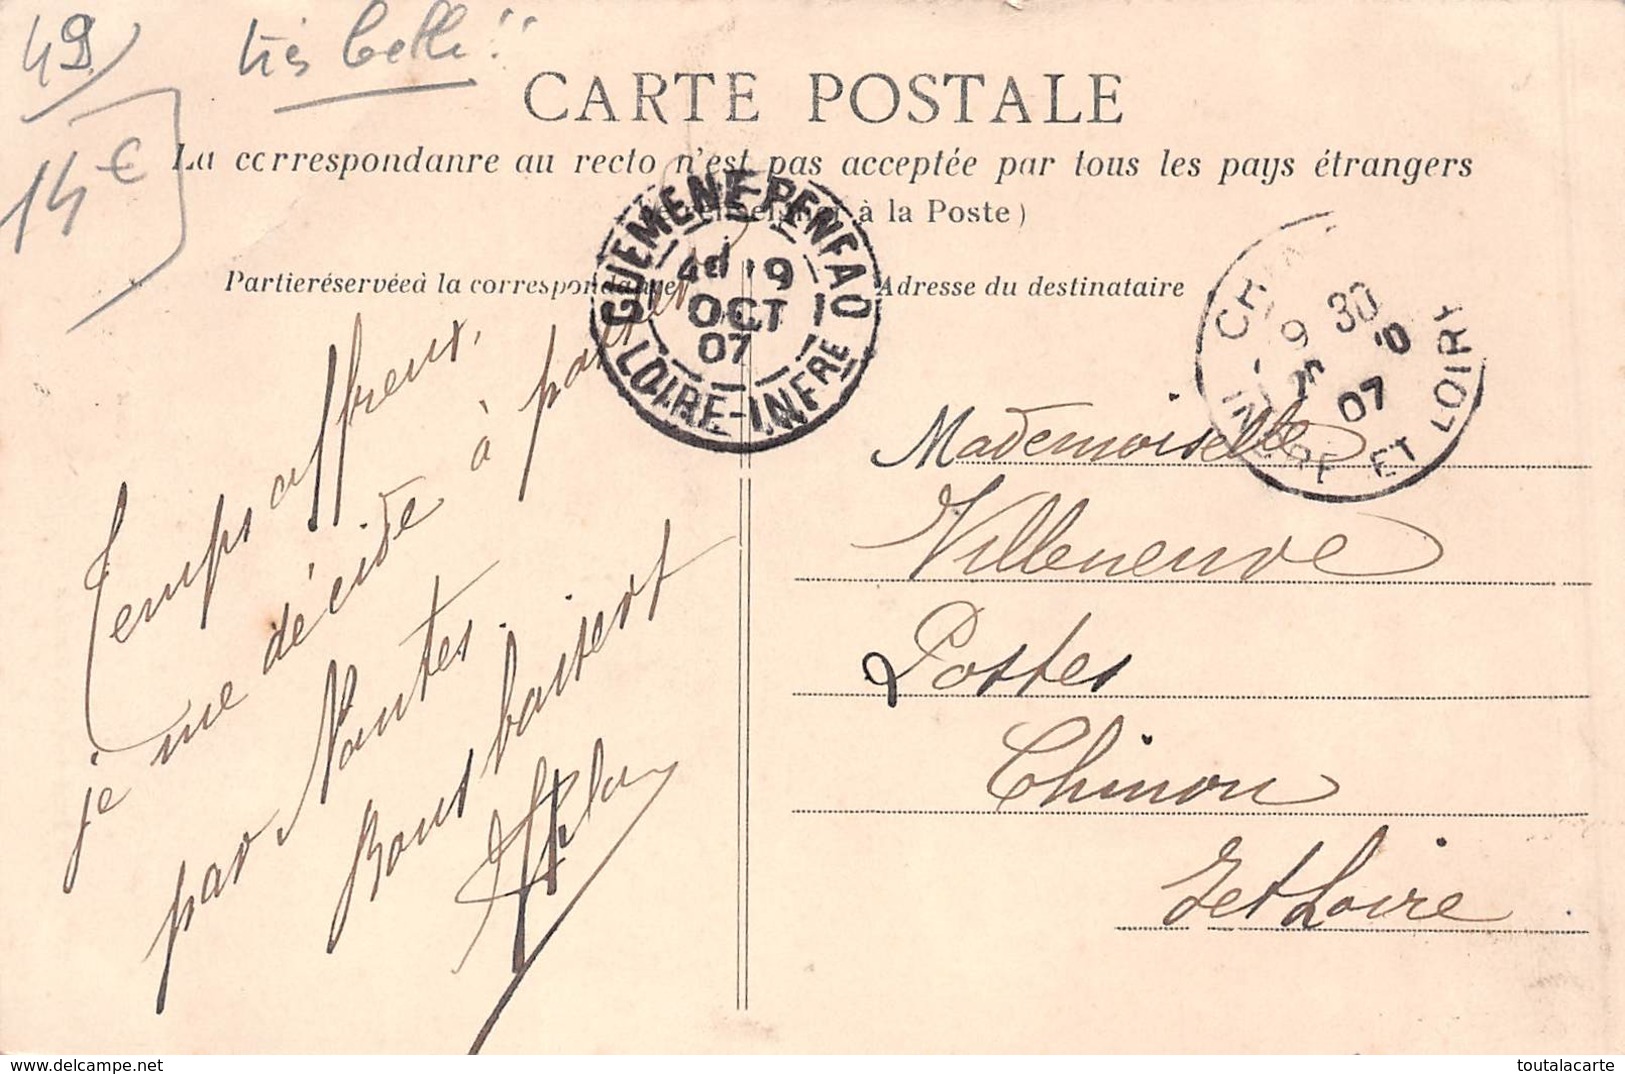 49
très belle !!
14€
CARTE POSTALE
La ccrrespondanre au recto n'est pas acceptée par tous les pays étrangers
à la Poste)
Partieréservéeà la correspondance
Adresse du destinataire
GUEMENE-PENFAO
4d 19
OCT
07
LOIRE-INFRE
9 30
07
INDRE ET LOIRE
Temps affreux,
je me décide à passer
par Nantes.
Bons baisers
Mademoiselle
Villeneuve
Postes
Chinon
I et Loire
https://www.delcampe.net
toutalacarte